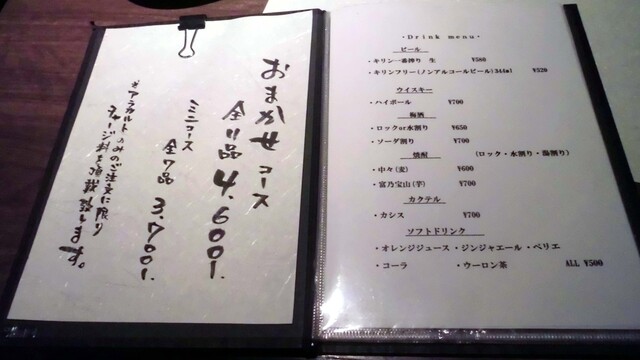 おまかせコース
全11品 4,600l.
ミニコース
全7品 3,700l.
※アラカルトのみのご注文に限り
チャージ料を頂戴致します。
・Drink menu・
ビール
・キリン一番搾り 生 ¥580
・キリンフリー(ノンアルコールビール)344ml ¥520
ウイスキー
・ハイボール ¥700
梅酒
・ロックor水割り ¥650
・ソーダ割り ¥700
焼酎 (ロック・水割り・湯割り)
・中々(麦) ¥600
・富乃宝山(芋) ¥700
カクテル
・カシス ¥700
ソフトドリンク
・オレンジジュース・ジンジャエール・ペリエ
・コーラ ・ウーロン茶 ALL ¥500